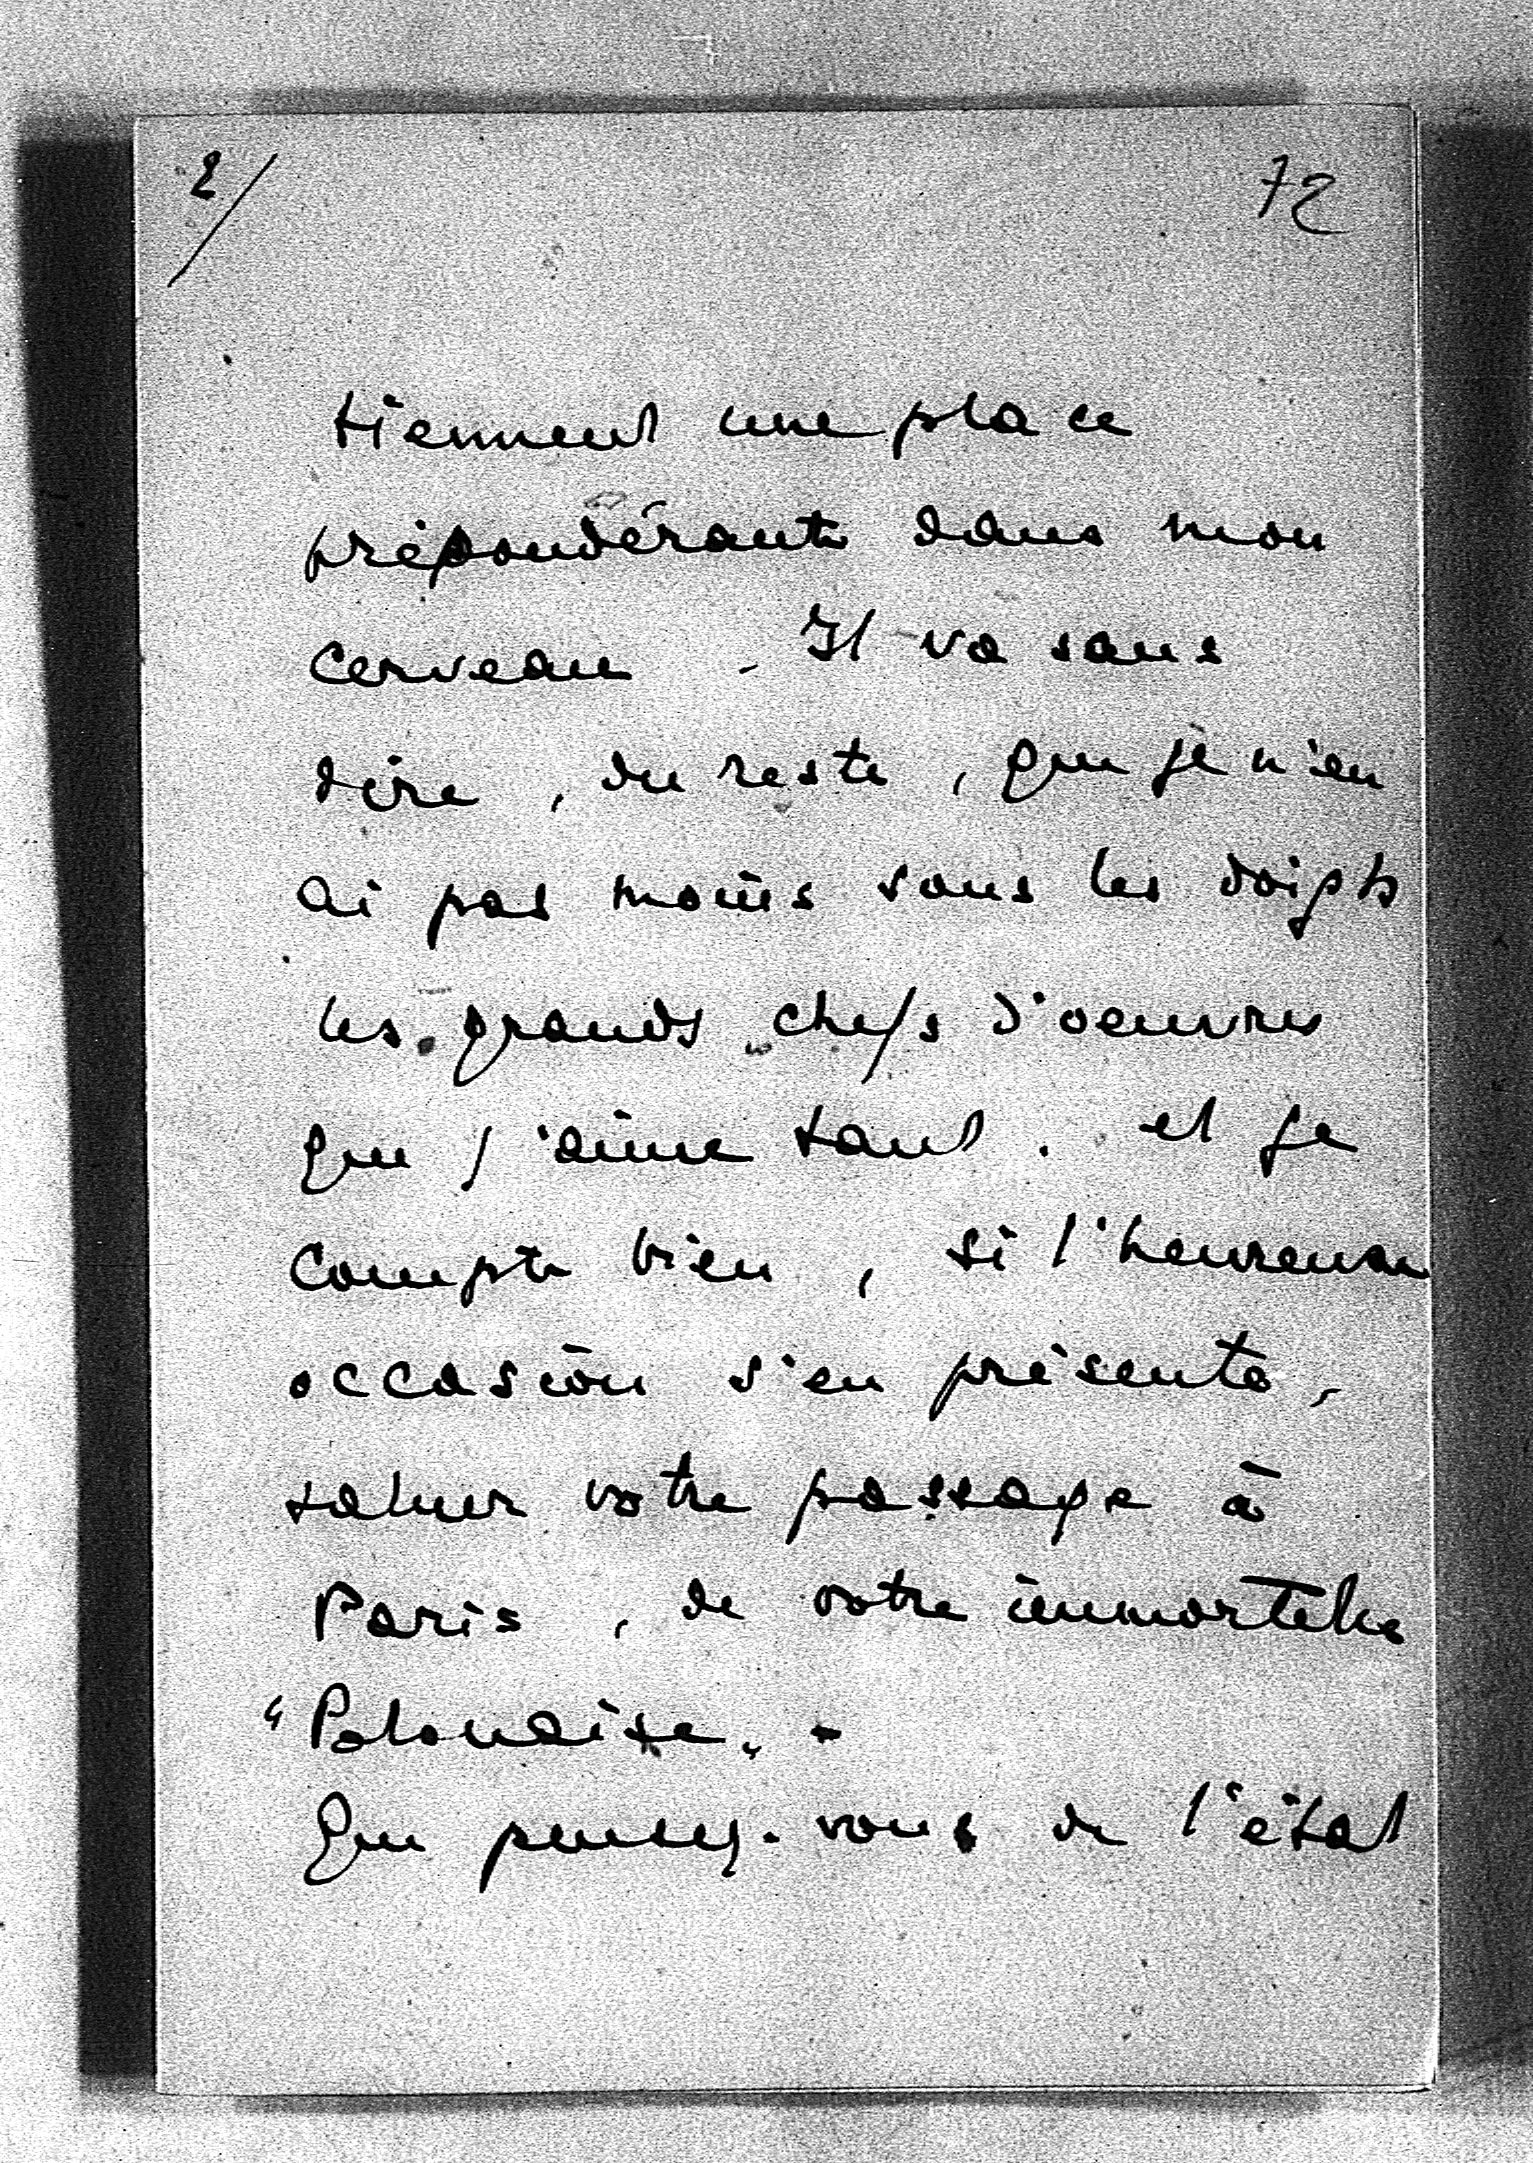 2/
72
tiennent une place
prépondérante dans mon
cerveau. Il va sans
dire, du reste, que je n'en
ai pas moins sous les doigts
les grands chefs d'oeuvres
que j'aime tant. et je
compte bien, si l'heureuse
occasion s'en présente,
saluer votre passage à
Paris, de votre immortelle
"Polonaise". -
Que pensez-vous de l'état